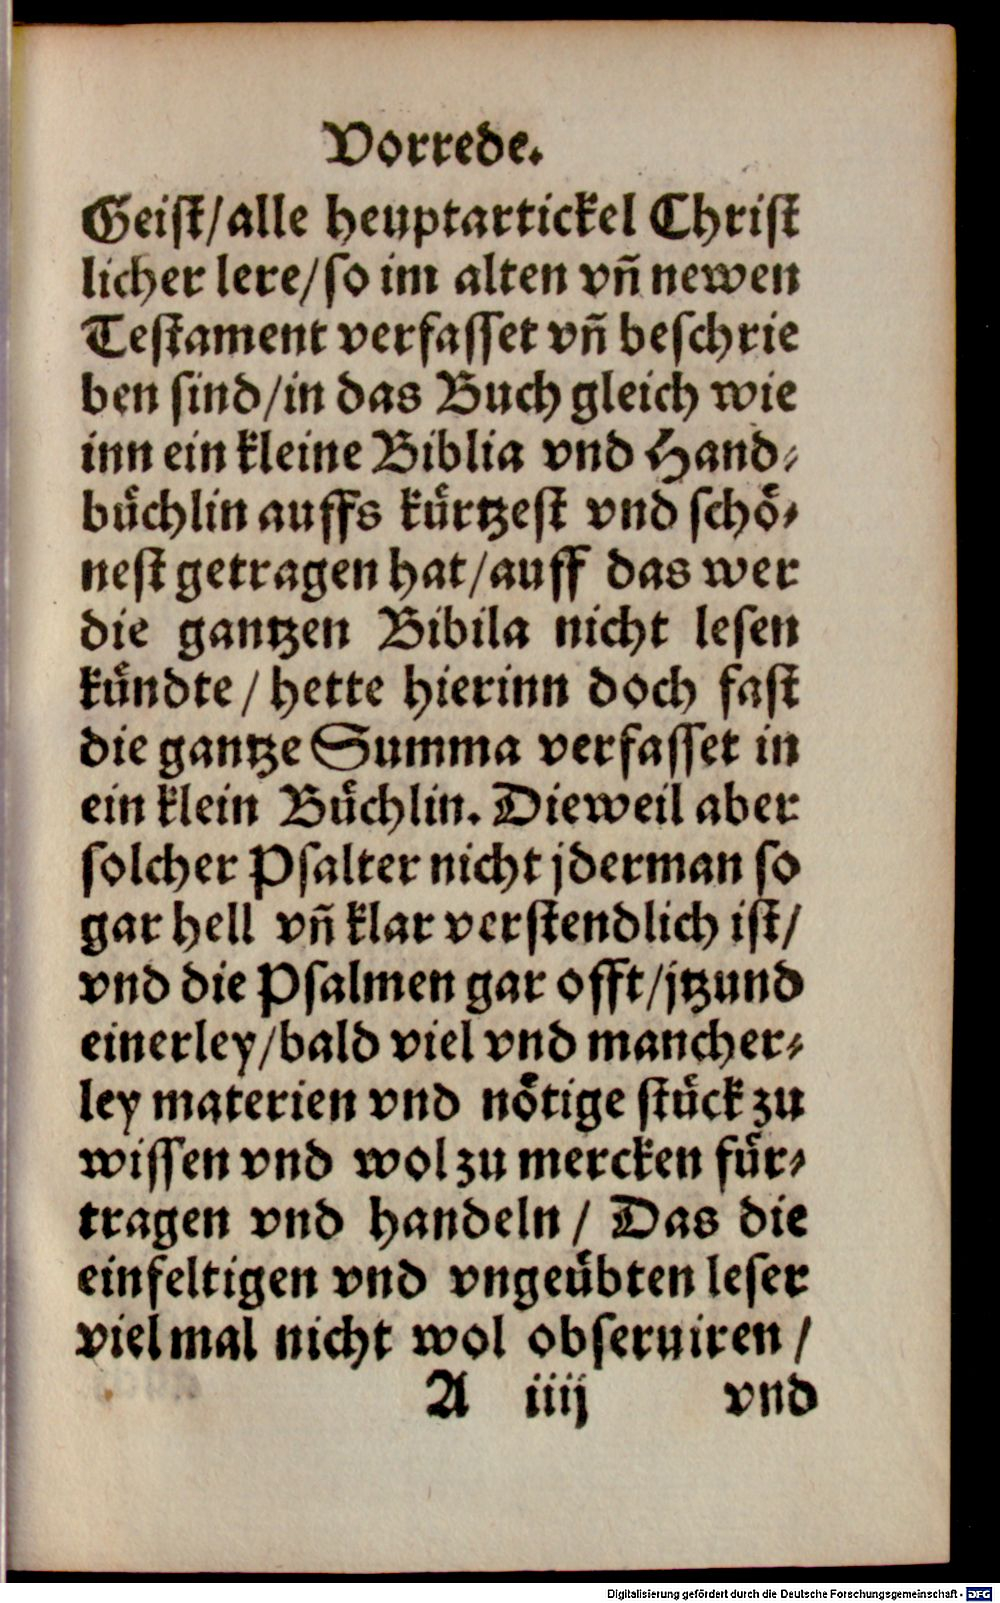 Vorrede.
Geiſt/alle heuptartickel Chriſt
licher lere/ſo im alten vñ newen
Teſtament verfaſſet vñ beſchrie
ben ſind/in das Buch gleich wie
inn ein kleine Biblia vnd Hand⸗
buͤchlin auffs kuͤrtzeſt vnd ſchoͤ⸗
neſt getragen hat/auff das wer
die gantzen Bibila nicht leſen
kuͤndte/ hette hierinn doch faſt
die gantze Summa verfaſſet in
ein klein Buͤchlin. Dieweil aber
ſolcher Pſalter nicht jderman ſo
gar hell vñ klar verſtendlich iſt/
vnd die Pſalmen gar offt/jtzund
einerley/bald viel vnd mancher⸗
ley materien vnd noͤtige ſtuͤck zu
wiſſen vnd wol zu mercken fuͤr⸗
tragen vnd handeln/ Das die
einfeltigen vnd vngeuͤbten leſer
viel mal nicht wol obſeruiren/
A iiij vnd
Digitalisierung gefördert durch die Deutsche Forschungsgemeinschaft - DFG